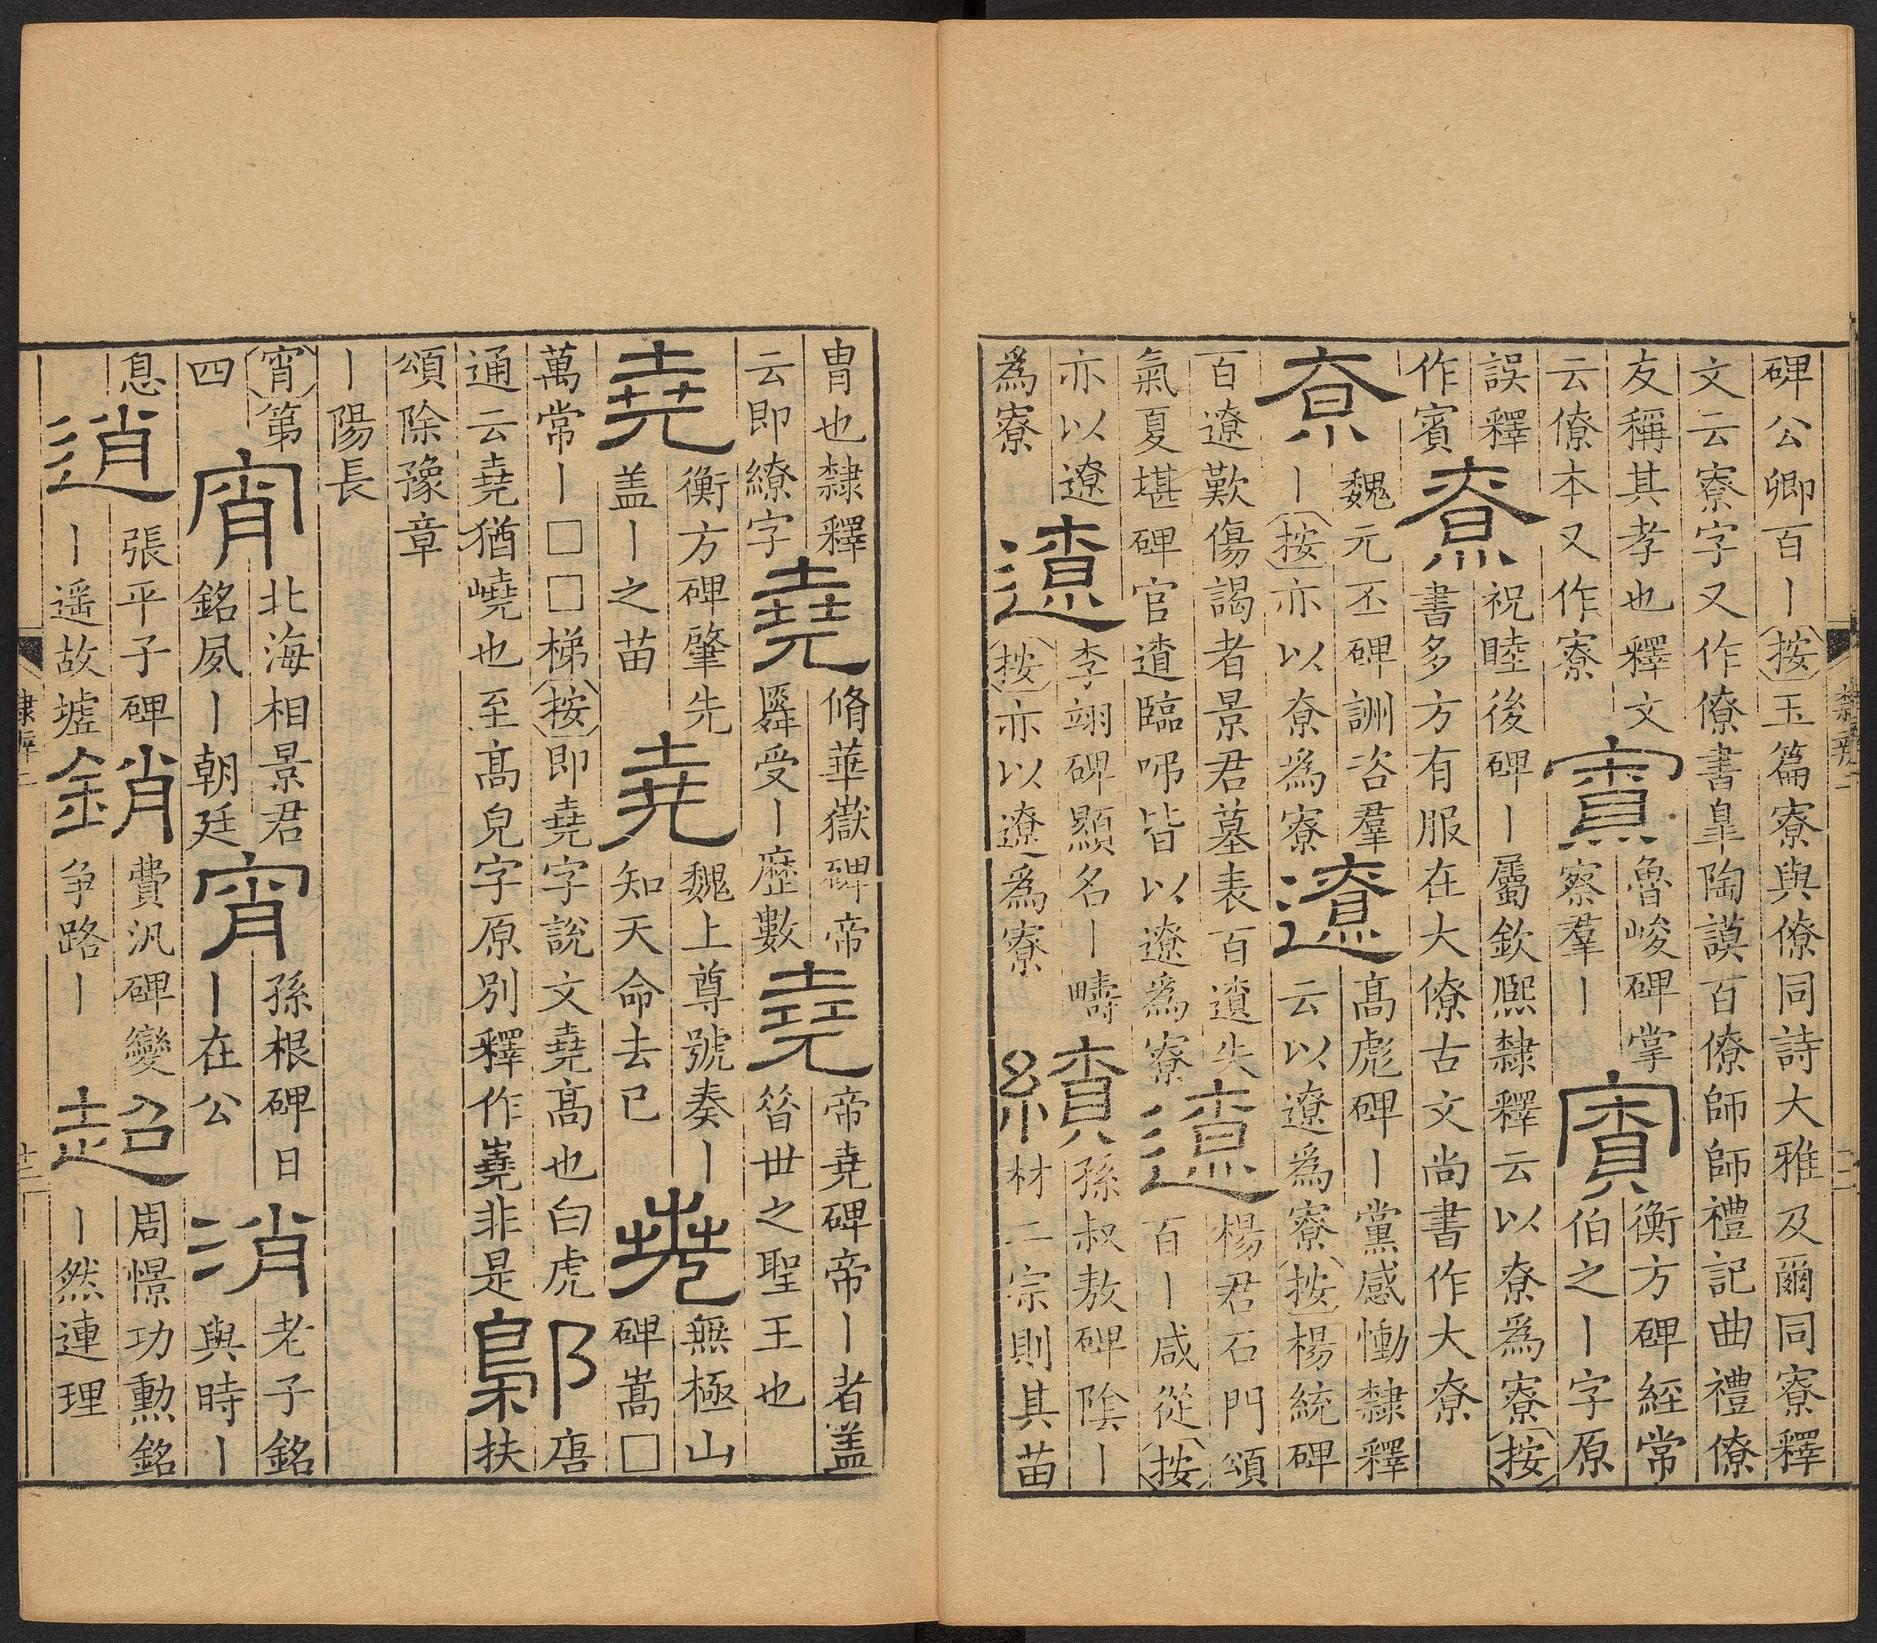 碑公卿百丨按玉篇寮與僚同詩大雅及爾同寮釋
文云寮字又作僚書臯陶謨百僚師師禮記曲禮僚
友稱其孝也釋文
云僚本又作寮
寮
魯峻碑掌
察羣丨
寮
衡方碑經常
伯之丨字原
誤釋
作賓
尞
祝睦後碑丨屬欽熈隸釋云以尞爲寮按
書多方有服在大僚古文尚書作大尞
尞
魏元丕碑訓咨羣
丨按亦以尞爲寮
遼
高彪碑丨黨感慟隸釋
云以遼爲寮按楊統碑
百遼歎傷謁者景君墓表百遺失
氣夏堪碑官遺臨弔皆以遼爲寮
遼
楊君石門頌
百丨咸從按
亦以遼
爲寮
遼
李翊碑顯名丨疇
按亦以遼爲寮
繚
孫叔敖碑陰丨
材二宗則其苗
胄也隸釋
云即繚字
堯
脩華嶽碑帝
舜受丨歴數
堯
帝堯碑帝丨者蓋
昔世之聖王也
堯
衡方碑肇先
盖丨之苗
堯
魏上尊號奏丨
知天命去已
堯
無極山
碑嵩□
萬常丨□□梯按即堯字說文堯高也白虎
通云堯猶嶢也至高皃字原别釋作嶤非是
鄡
唐
扶
頌除豫章
丨陽長
宵第
四
宵
北海相景君
銘夙丨朝廷
宵
孫根碑日
丨在公
消
老子銘
與時丨
息
逍
張平子碑
丨遥故墟
銷
費汎碑變
争路丨
超
周憬功勳銘
丨然連理